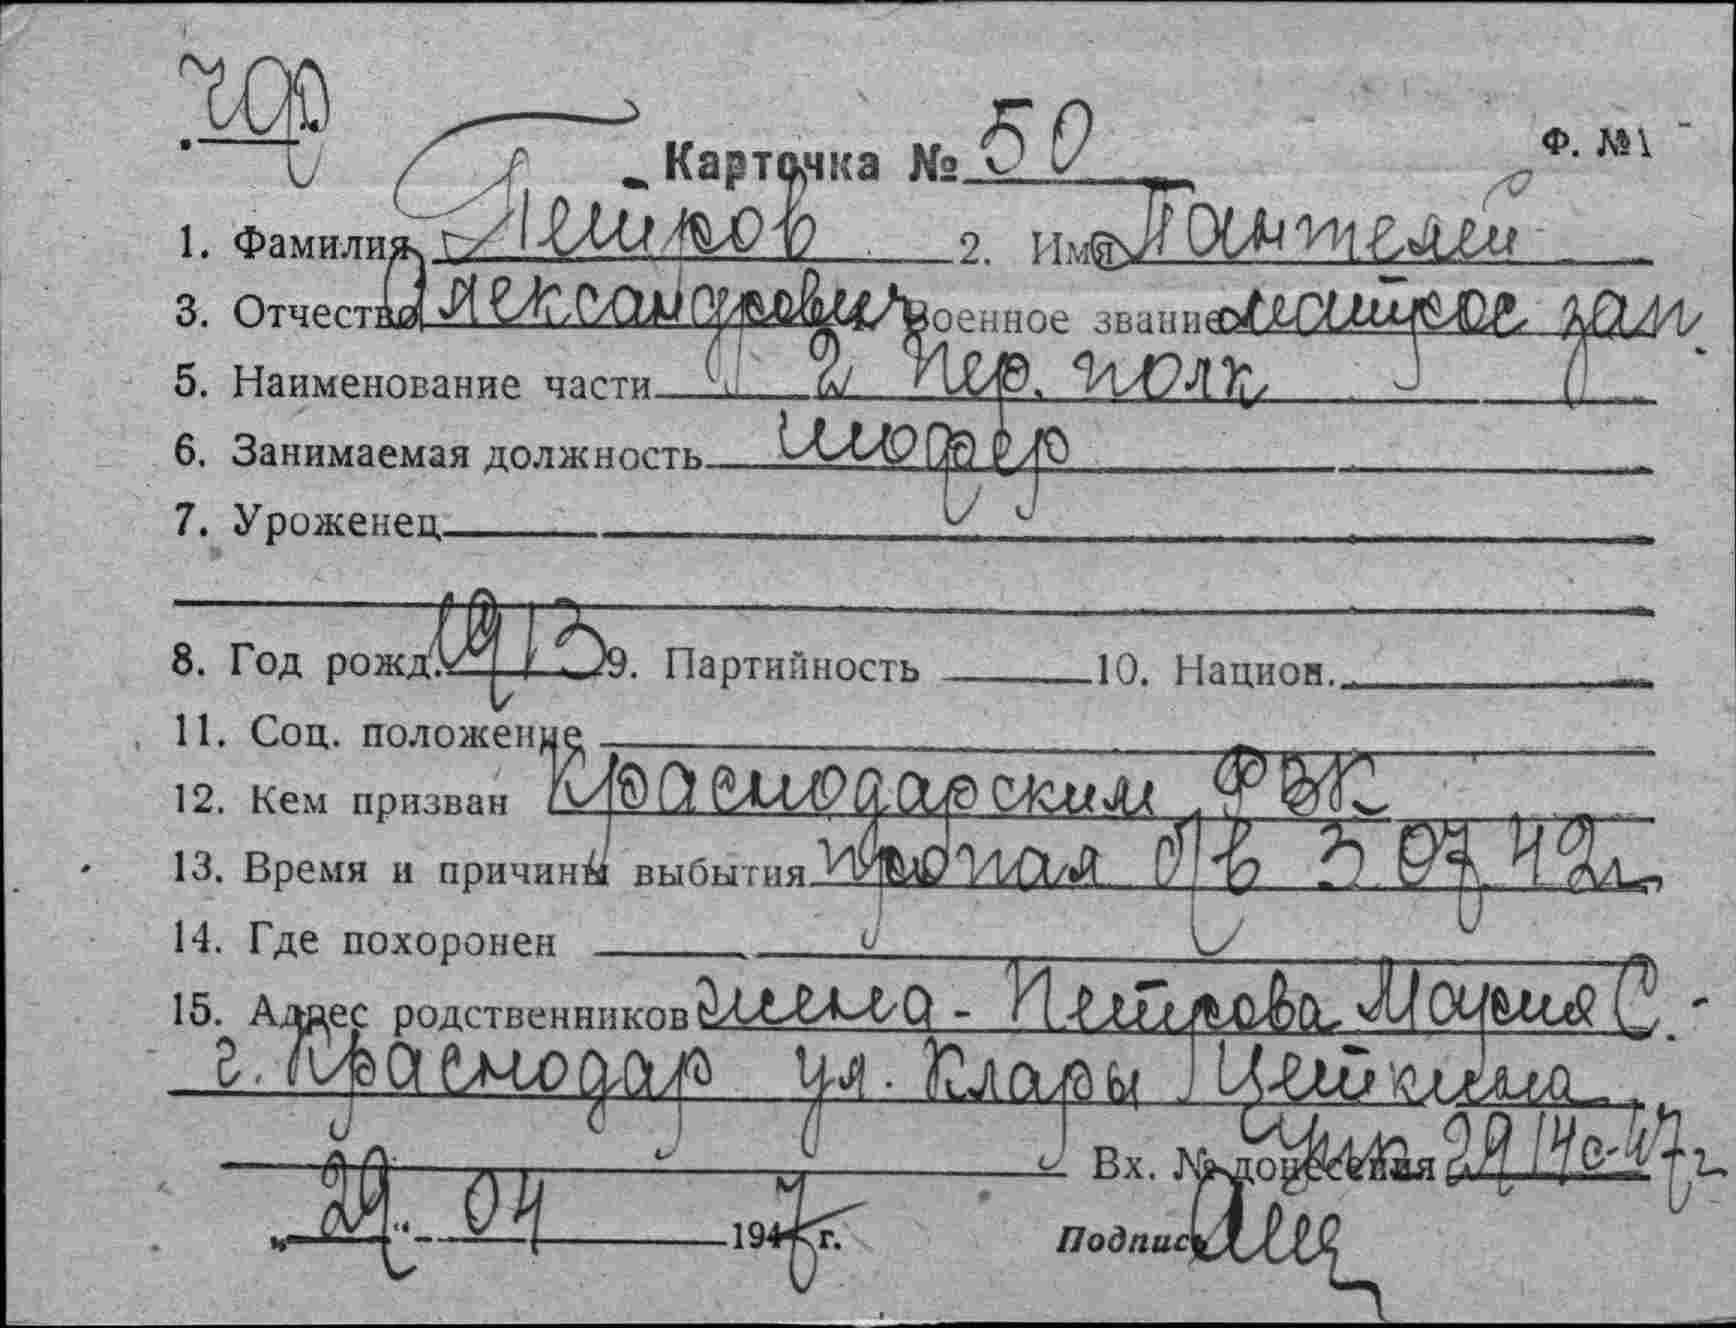 Карточка № 50 Ф. №1
1. Фамилия Петров 2. Имя Пантелей
3. Отчество Александрович Военное звание младшее зам.
5. Наименование части 2 пер. полк
6. Занимаемая должность шофер
7. Уроженец
8. Год рожд. 1913 9. Партийность 10. Национ.
11. Соц. положение
12. Кем призван Краснодарским ФВК
13. Время и причины выбытия пропал б/в 3 07 42г.
14. Где похоронен
15. Адрес родственников жена - Петрова Мария С. -
г. Краснодар ул. Клары Цеткина
Вх. № донесения 29 14с-47г
„29“ 04 1947 г. Подпись